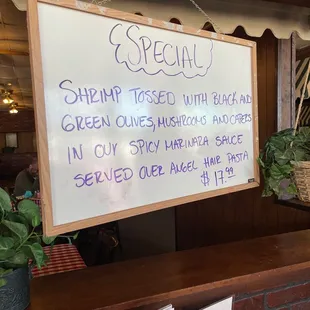 SPECIAL
SHRIMP TOSSED WITH BLACK AND
GREEN OLIVES, MUSHROOMS AND CAPERS
IN OUR SPICY MARINARA SAUCE
SERVED OVER ANGEL HAIR PASTA
$17.99